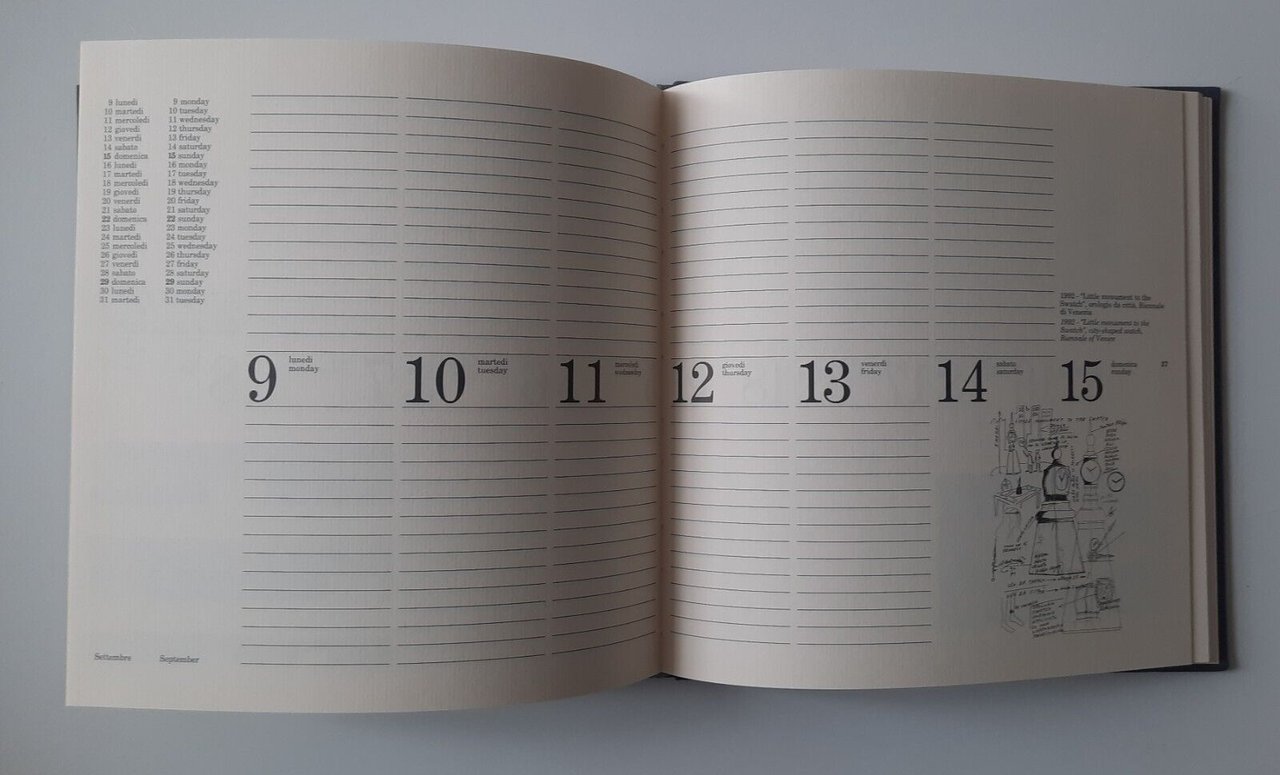 9 lunedì 9 monday
10 martedì 10 tuesday
11 mercoledì 11 wednesday
12 giovedì 12 thursday
13 venerdì 13 friday
14 sabato 14 saturday
15 domenica 15 sunday
16 lunedì 16 monday
17 martedì 17 tuesday
18 mercoledì 18 wednesday
19 giovedì 19 thursday
20 venerdì 20 friday
21 sabato 21 saturday
22 domenica 22 sunday
23 lunedì 23 monday
24 martedì 24 tuesday
25 mercoledì 25 wednesday
26 giovedì 26 thursday
27 venerdì 27 friday
28 sabato 28 saturday
29 domenica 29 sunday
30 lunedì 30 monday
31 martedì 31 tuesday
1992 - "Little monument to the
Swatch", orologio da città, Biennale
di Venezia
1992 - "Little monument to the
Swatch", city-shaped watch,
Biennale of Venice
9 lunedì
monday
10 martedì
tuesday
11 mercoledì
wednesday
12 giovedì
thursday
13 venerdì
friday
14 sabato
saturday
15 domenica
sunday
37
LITTLE MONUMENT TO THE SWATCH
Settembre September